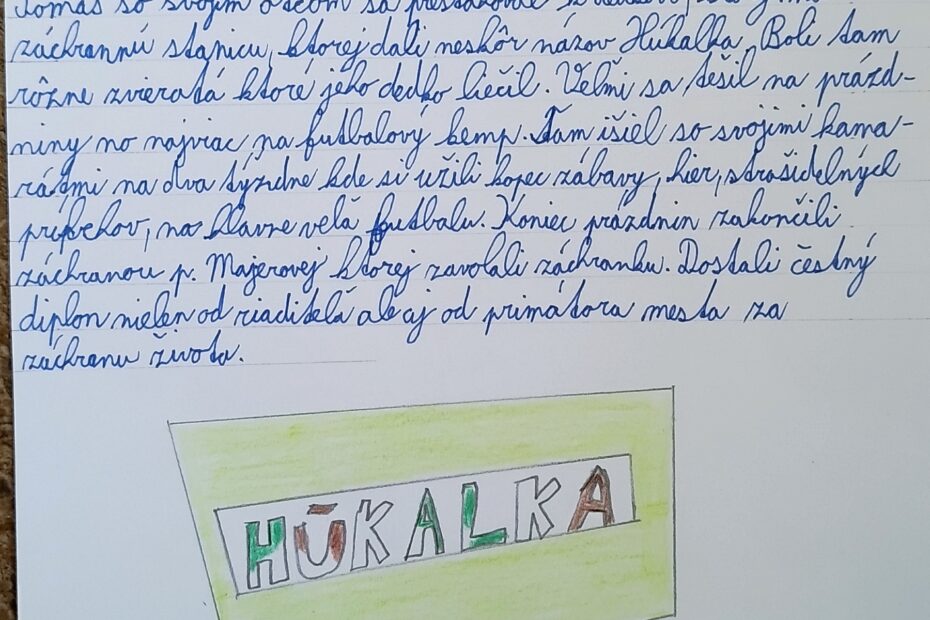 Tomáš so svojím otcom sa presťahoval
záchrannú stanicu, ktorej dali neskôr názov Húkalka. Boli tam
rôzne zvieratá ktoré jeho dedko liečil. Veľmi sa tešil na prázd-
niny no najviac na futbalový kemp. Tam išiel so svojimi kama-
rátmi na dva týždne kde si užili kopec zábavy, hier, strašidelných
príbehov, no hlavne veľa futbalu. Koniec prázdnin zakončili
záchranou p. Majerovej ktorej zavolali záchranku. Dostali čestný
diplon nielen od riaditeľa ale aj od primátora mesta za
záchranu života.
HÚKALKA